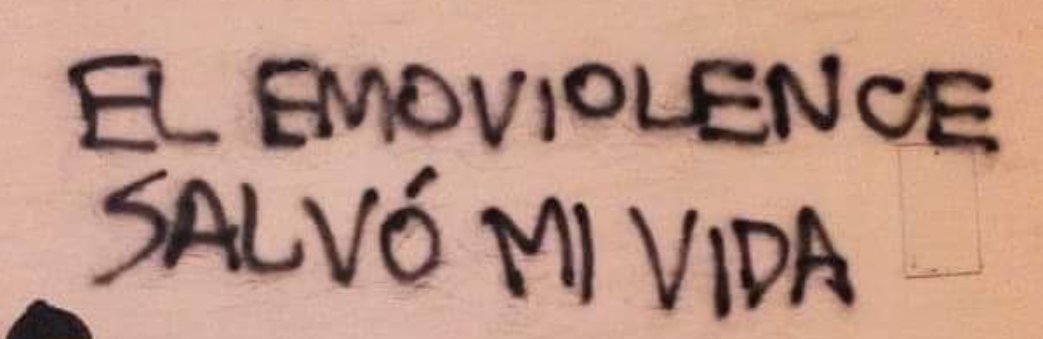 EL EMOVIOLENCE
SALVÓ MI VIDA